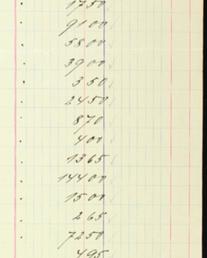 1750
9100
5800
3900
350
2450
870
400
1365
14400
1500
265
7250
495